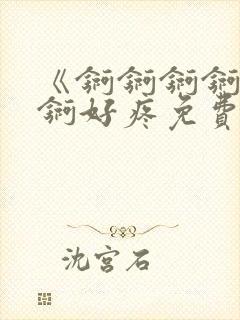 《锕锕锕锕
锕好疼免費
沈宮石